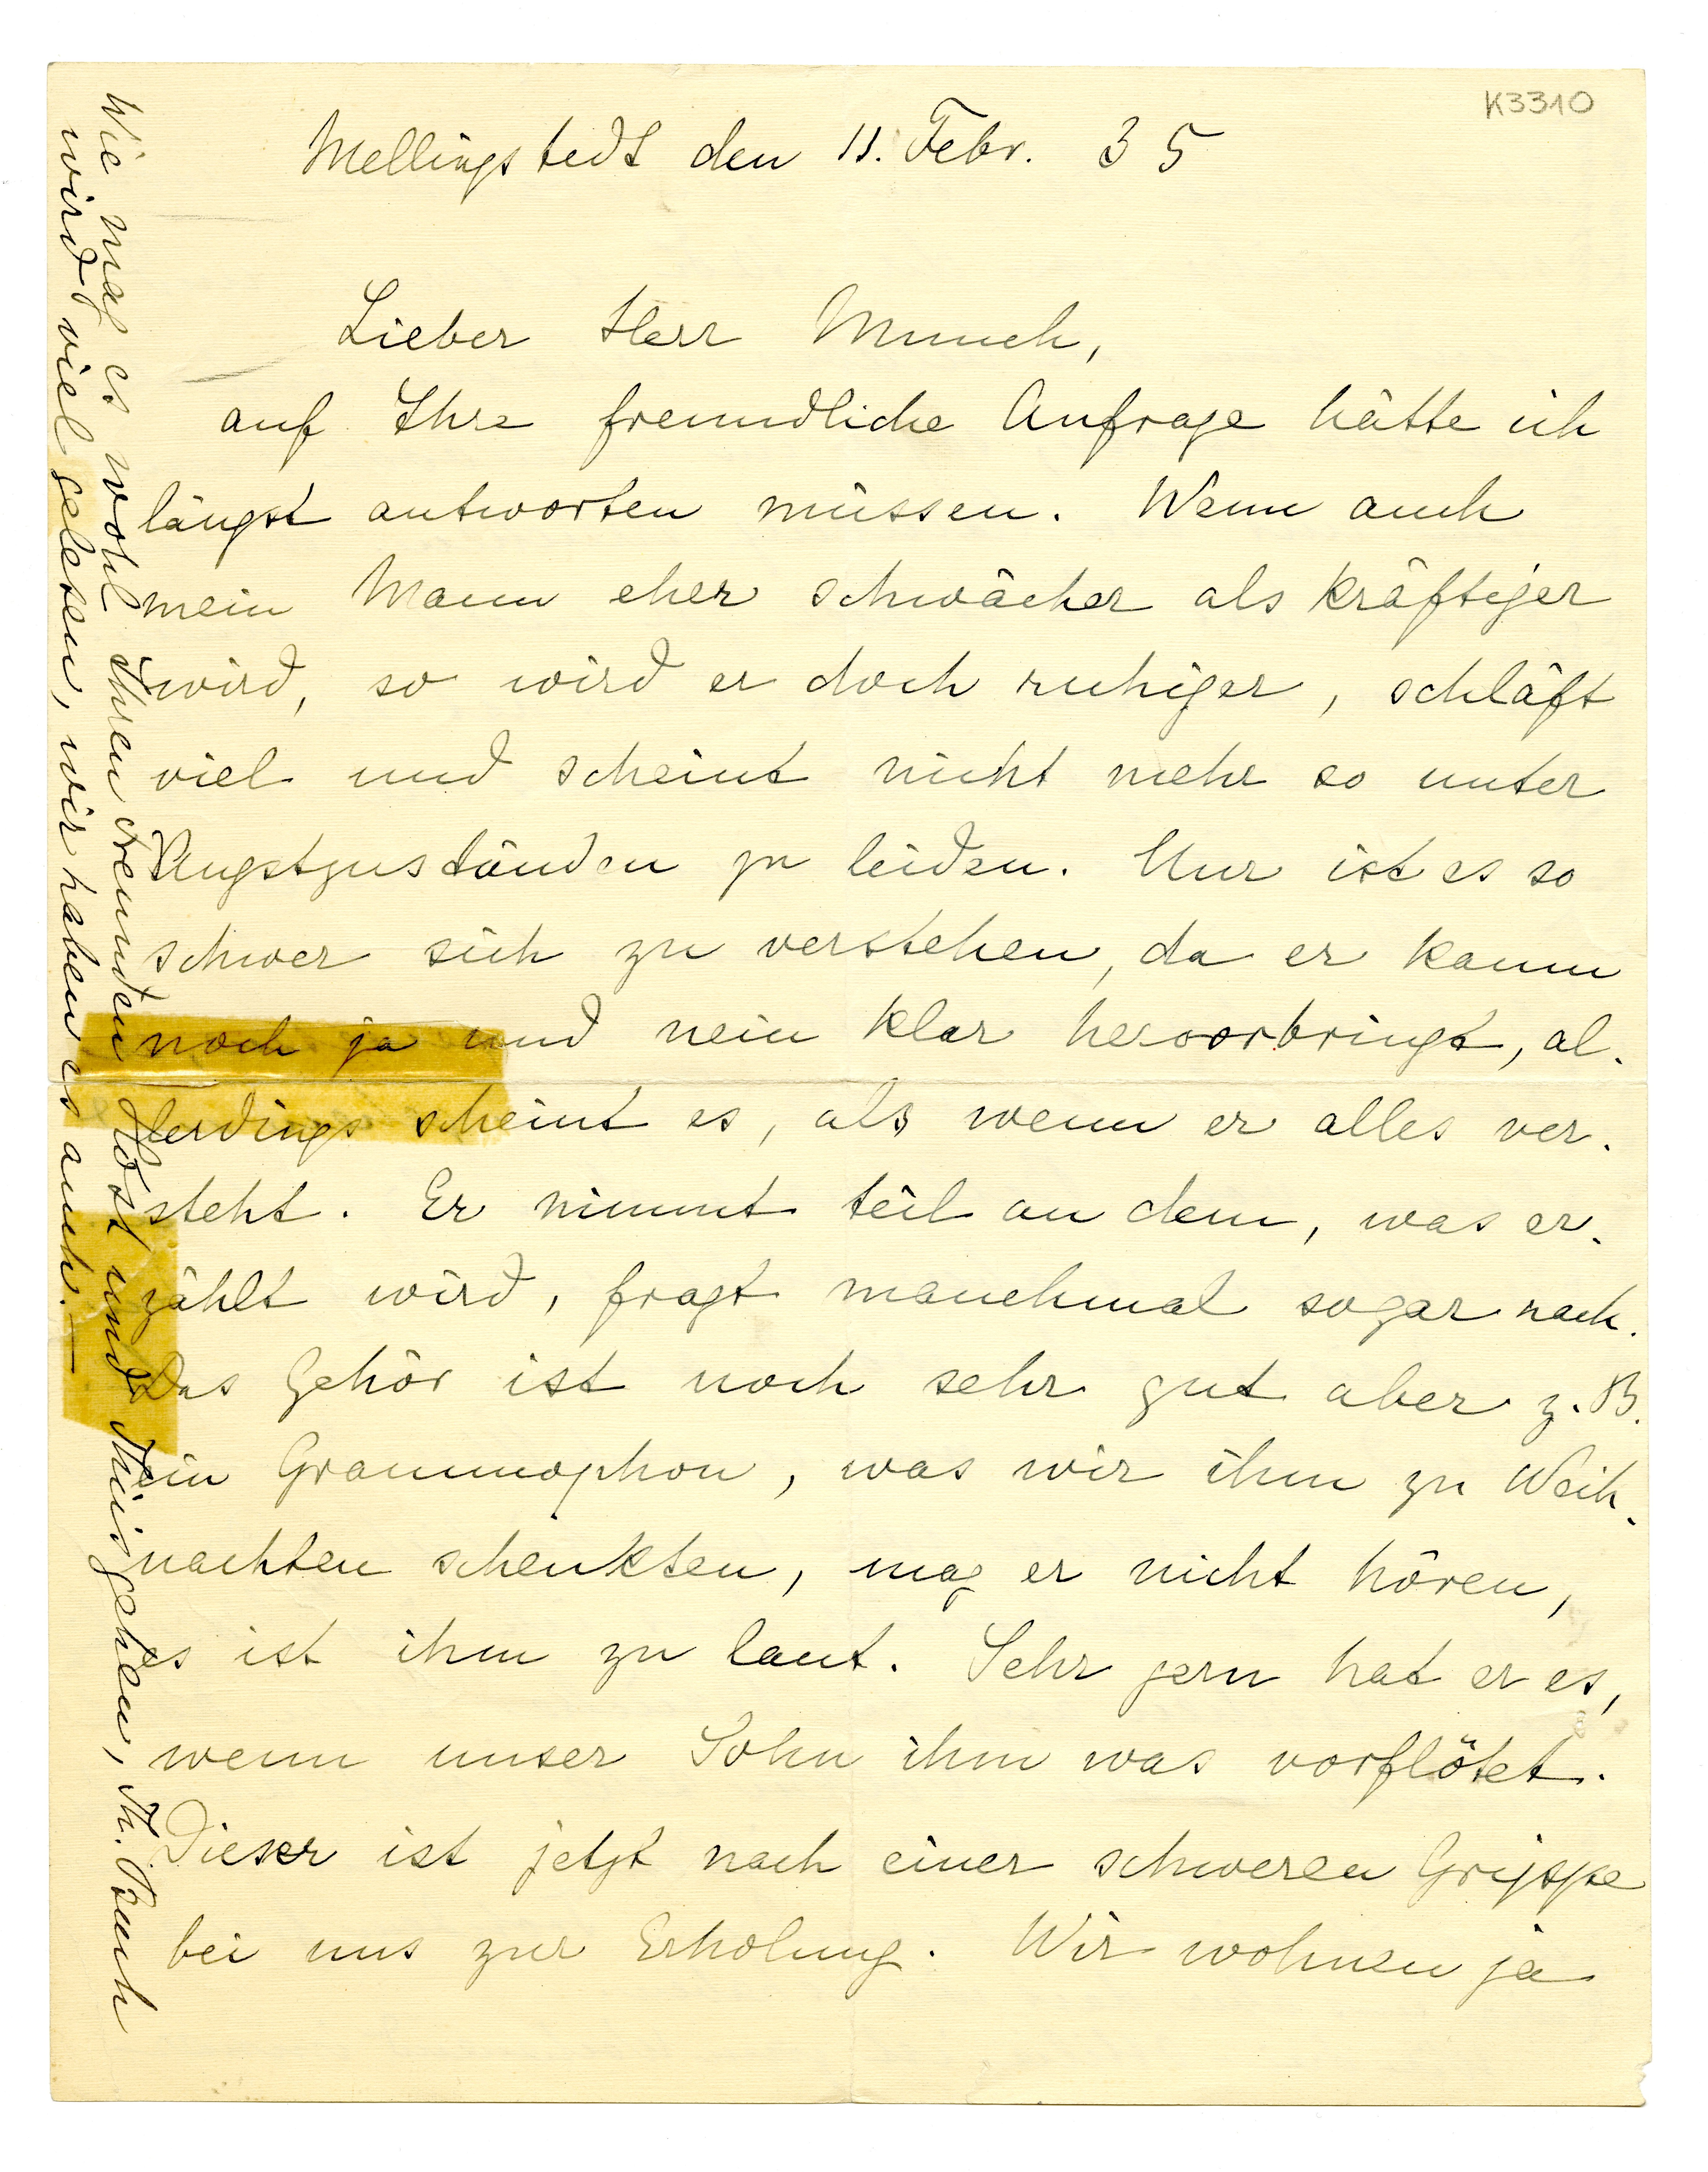 K3310
Mellingstedt den 11. Febr. 35
Lieber Herr Munch,
auf Ihre freundliche Anfrage hätte ich
längst antworten müssen. Wenn auch
mein Mann eher schwächer als kräftiger
wird, so wird er doch ruhiger, schläft
viel und scheint nicht mehr so unter
Angstzuständen zu leiden. Nur ist es so
schwer sich zu verstehen, da er kaum
noch ja und nein klar hervorbringt, al-
lerdings scheint es, als wenn er alles ver-
steht. Er nimmt teil an dem, was er-
zählt wird, fragt manchmal sogar nach.
Das Gehör ist noch sehr gut aber z. B.
ein Grammophon, was wir ihm zu Weih-
nachten schenkten, mag er nicht hören,
es ist ihm zu laut. Sehr gern hat er es,
wenn unser Sohn ihm was vorflötet.
Dieser ist jetzt nach einer schweren Grippe
bei uns zur Erholung. Wir wohnen ja
Wie mag es wohl Ihren Freunden Høst und Thiis gehen, Th. Buch
wird viel gelesen, wir haben es auch. —